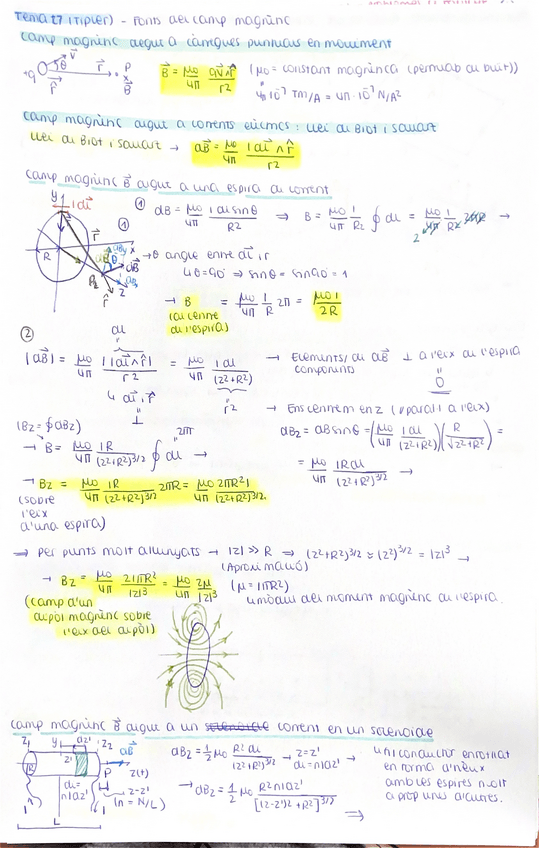 Tema 27 (Tipler) - Fonts del camp magnètic
Camp magnètic degut a càrregues puntuals en moviment
q v θ r P
r̂ B
B = μ0/4π q v∧r̂ / r²
(μ0 = constant magnètica (permeab. al buit))
4π·10⁻⁷ Tm/A = 4π·10⁻⁷ N/A²
Camp magnètic degut a corrents elèctrics: Llei de Biot i Savart
Llei de Biot i Savart → dB = μ0/4π I dl ∧ r̂ / r²
Camp magnètic B degut a una espira de corrent
① dB = μ0/4π I dl sinθ / R² ⇒ B = μ0/4π I/R² ∮ dl = μ0/4π I/R² 2πR →
y I dl
R r x
dB θ z r̂
→ θ angle entre dl, r
↳ θ=90° ⇒ sinθ = sin90° = 1
→ B = μ0/4π I/R 2π = μ0 I / 2R
(al centre
de l'espira)
②
|dB| = μ0/4π |I dl∧r̂| / r² = μ0/4π I dl / (z²+R²) → Elements/ de dB ⊥ a l'eix de l'espira
components
0
↳ dl, r̂
⊥
r²
→ Ens centrem en z (paral·l a l'eix)
dBz = dB sinθ = (μ0/4π I dl/(z²+R²)) (R/√(z²+R²)) =
= μ0/4π I R dl / (z²+R²)^3/2 →
(Bz = ∮ dBz)
2πR
→ B = μ0/4π IR/(z²+R²)^3/2 ∮ dl →
→ Bz = μ0/4π IR/(z²+R²)^3/2 2πR = μ0/4π 2πR²I/(z²+R²)^3/2
(sobre
l'eix
d'una espira)
⇒ Per punts molt allunyats → |z| ≫ R ⇒ (z²+R²)^3/2 ≈ (z²)^3/2 = |z|³ →
(Aproximació)
→ Bz = μ0/4π 2IπR²/|z|³ = μ0/4π 2μ/|z|³ (μ = IπR²)
↳ mòdul del moment magnètic de l'espira.
(camp d'un
dipol magnètic sobre
l'eix del dipol)
Camp magnètic B degut a un corrent en un solenoide
z1 y dz' z2 dB
R P z(t)
z' z-z'
di = nIdz' (n = N/L)
I I
L
dBz = ½ μ0 R² di / (z²+R²)^3/2 → z = z'
di = nIdz'
→ dBz = ½ μ0 R² nIdz' / [(z-z')²+R²]^3/2 ⇒
→ un conductor enrotllat
en forma d'hèlix
amb les espires molt
a prop unes d'altres.